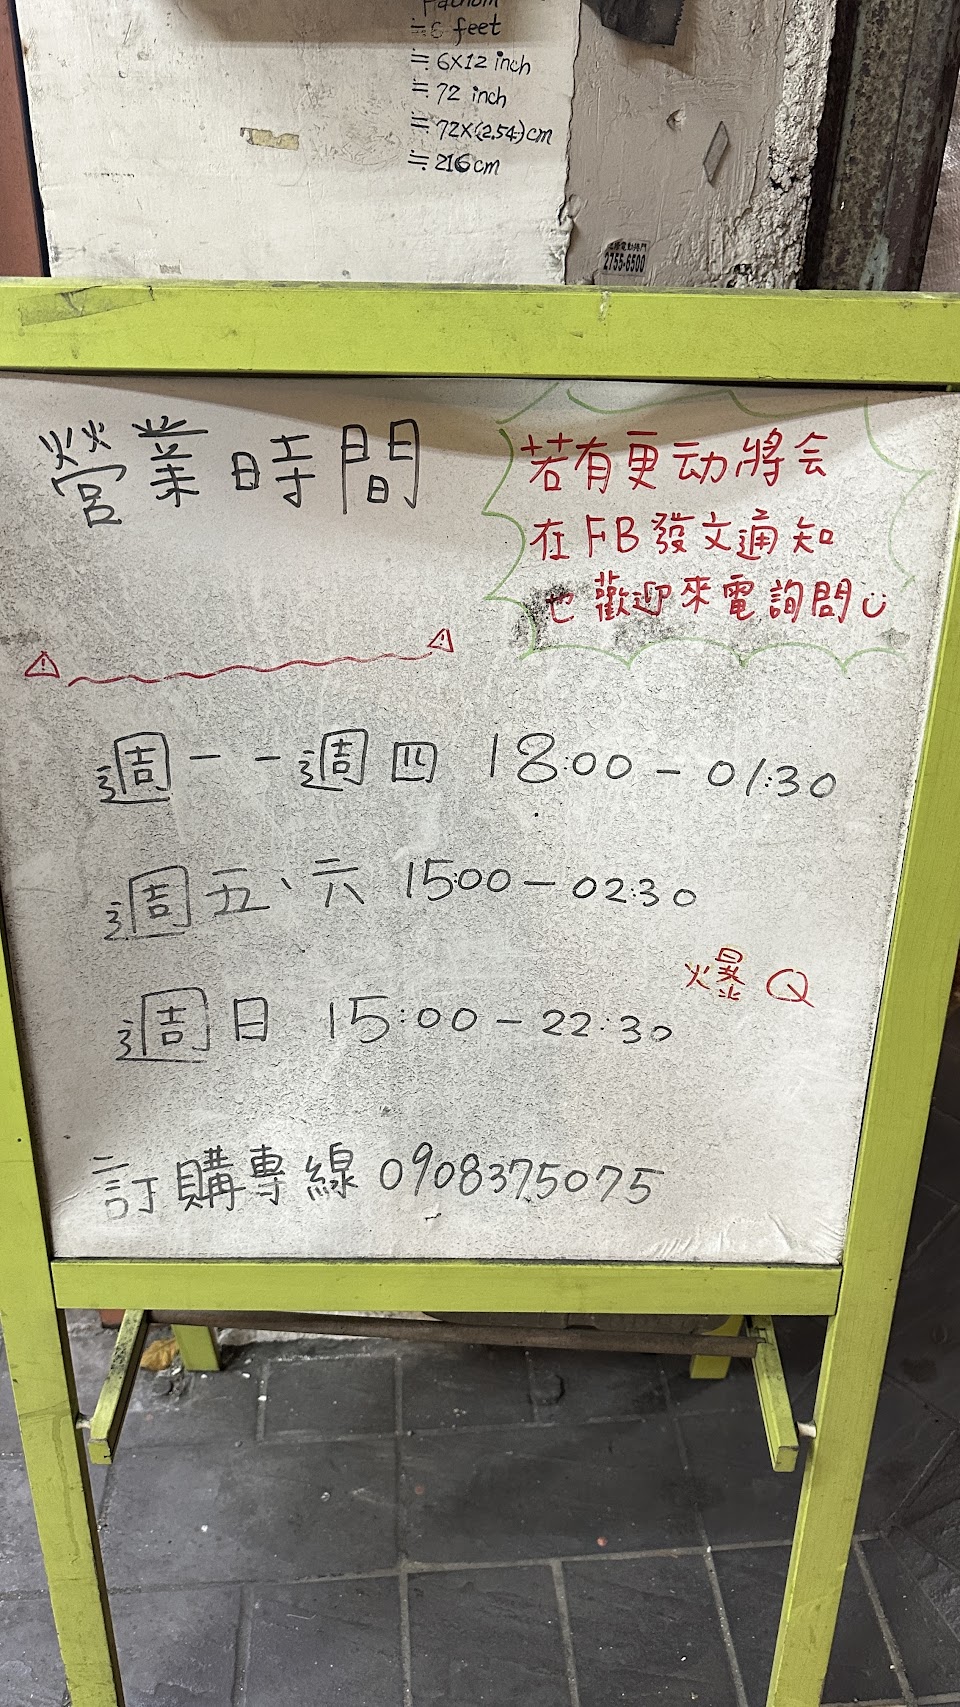 Fathom
≒6 feet
≒6×12 inch
≒72 inch
≒72×(2.54)cm
≒216cm
2755-6500
營業時間
若有更动將会
在FB發文通知
也歡迎來電詢問
週一--週四 18:00-01:30
週五、六 15:00-02:30
爆Q
週日 15:00-22:30
訂購專線 0908375075